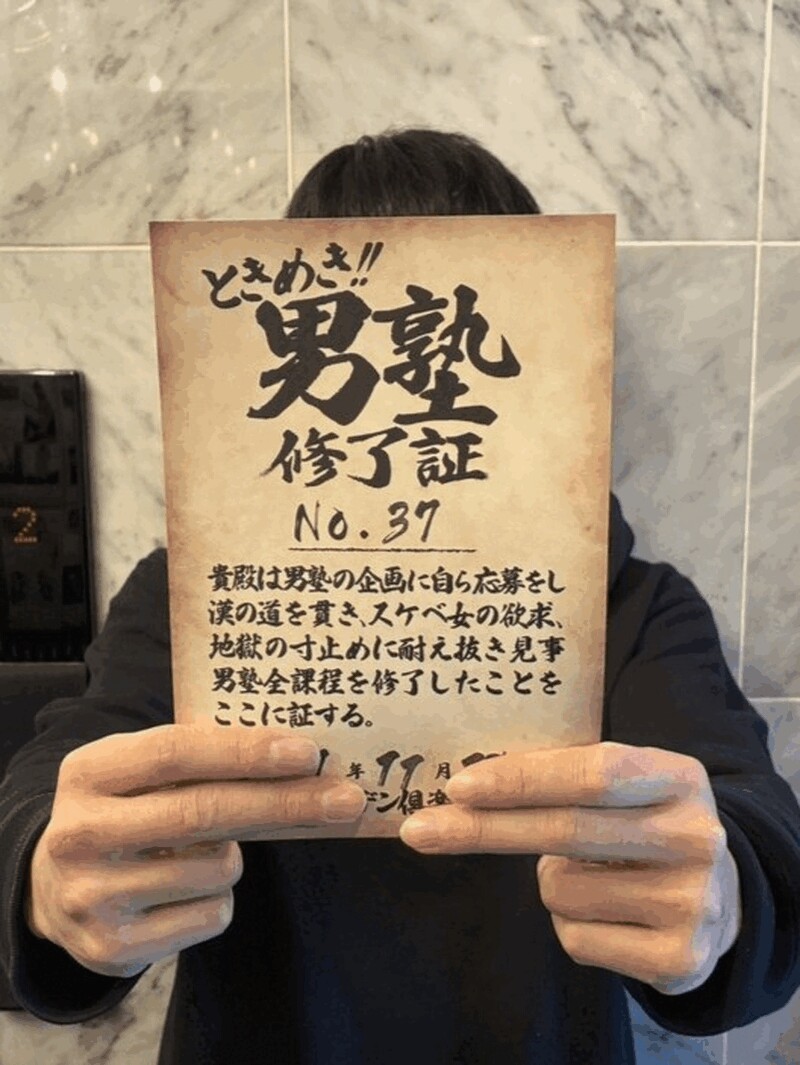 ときめき!!
男塾
修了証
No. 37
貴殿は男塾の企画に自ら応募をし
漢の道を貫き、スケベ女の欲求、
地獄の寸止めに耐え抜き見事
男塾全課程を修了したことを
ここに証する。
年 11 月
デン倶楽
2